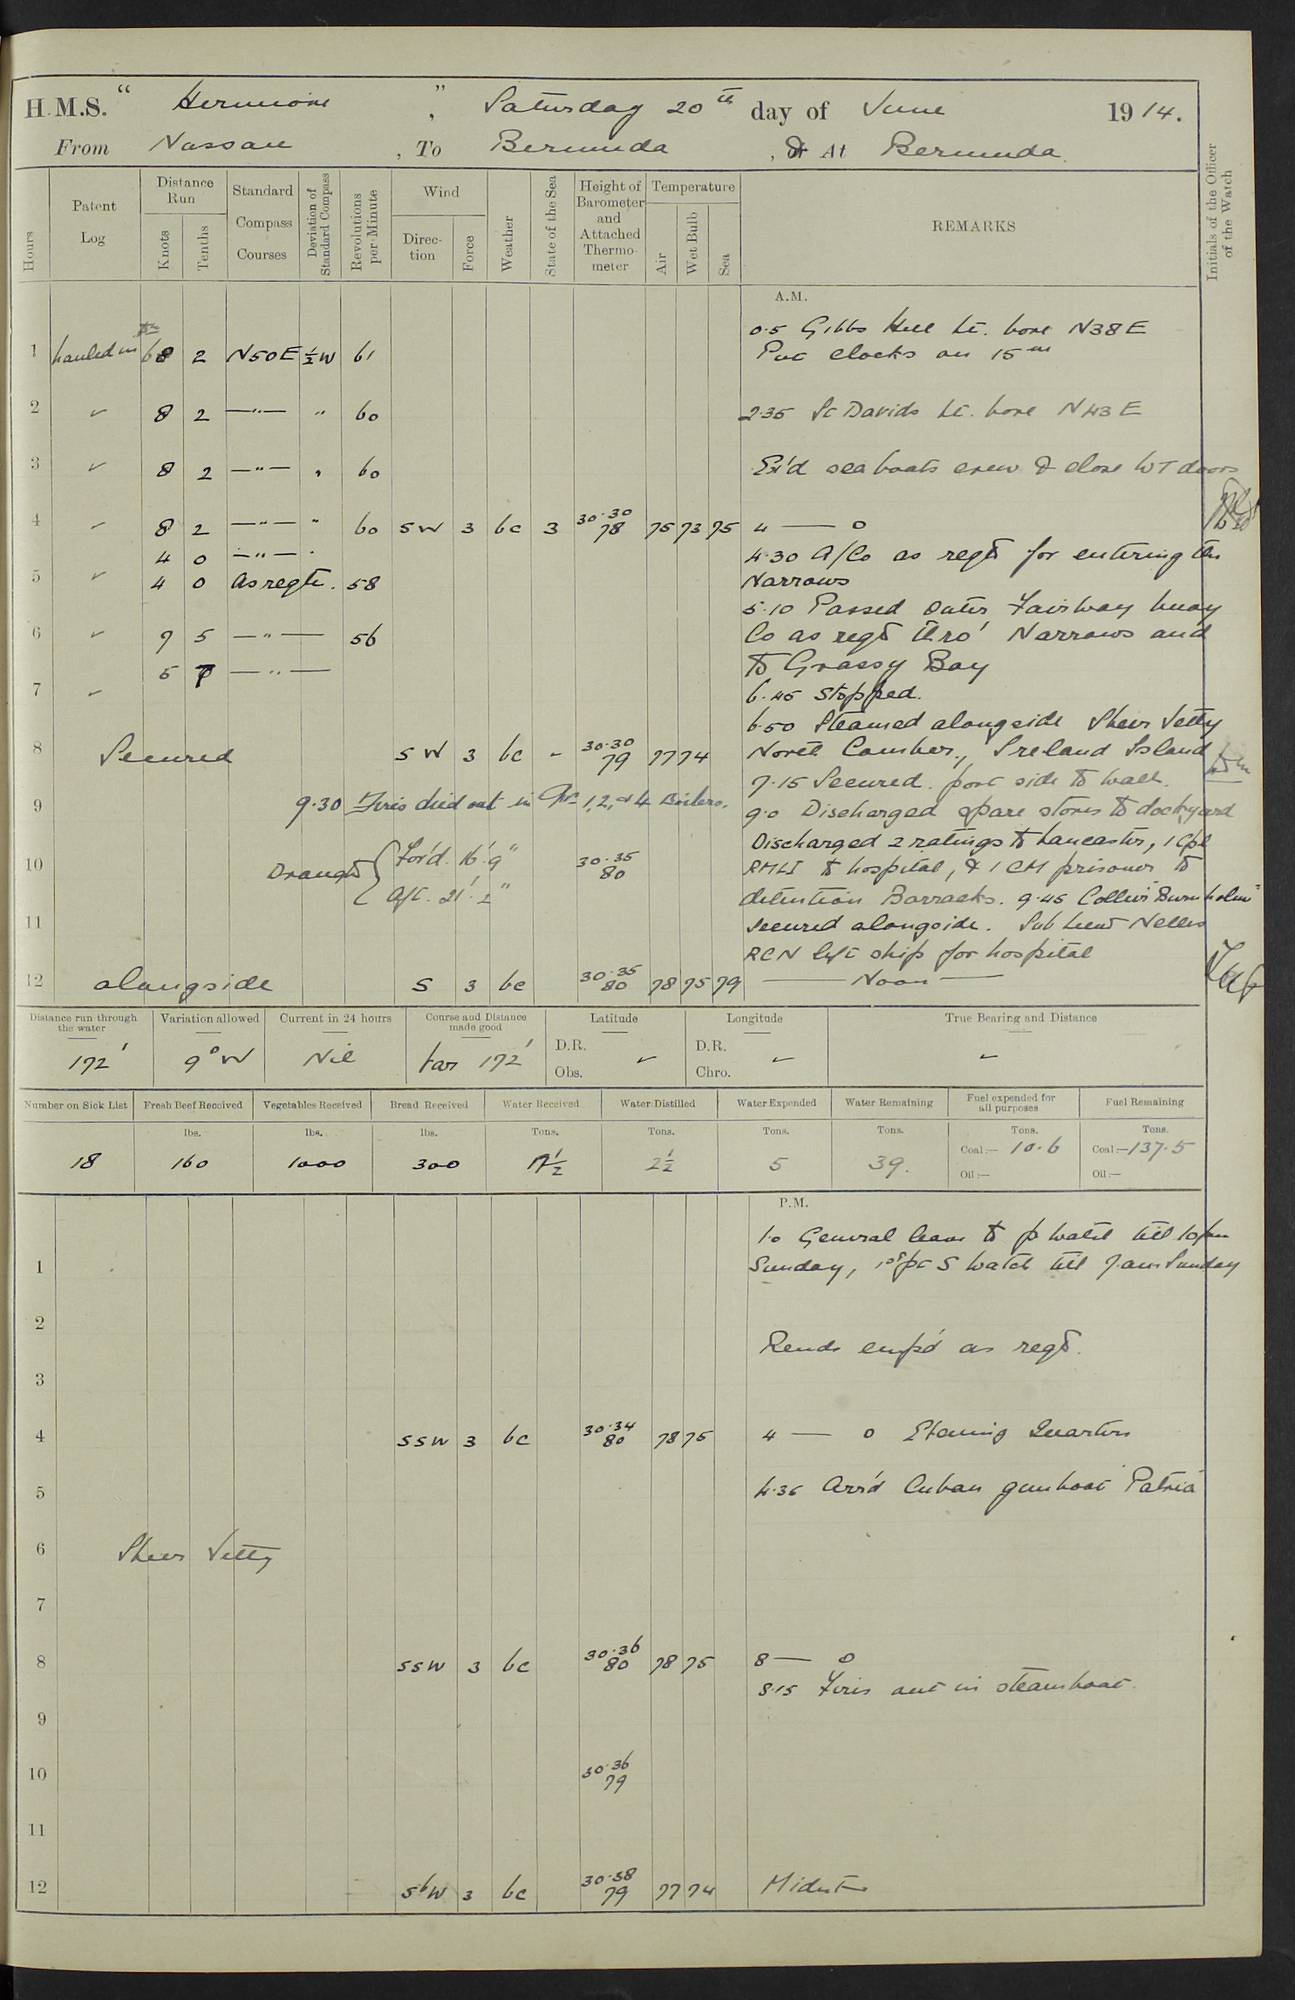 H.M.S. “ Hermione ”, Saturday 20th day of June 1914.
From Nassau , To Bermuda , & At Bermuda.
Hours
Patent Log
Distance Run
Knots
Tenths
Standard Compass Courses
Deviation of Standard Compass
Revolutions per Minute
Wind
Direction
Force
Weather
State of the Sea
Height of Barometer and Attached Thermometer
Temperature
Air
Wet Bulb
Sea
REMARKS
Initials of the Officer of the Watch
A.M.
0.5 Gibbs Hill Lt. bore N38E
1 hauled in 8 2 N50E ½W 61 Put clocks on 15m
2 ✓ 8 2 —"— " 60 2.35 St Davids Lt. bore N43E
3 ✓ 8 2 —"— " 60 Ex'd sea boats crew & close WT doors
4 ✓ 8 2 —"— " 60 SW 3 bc 3 30.30 78 75 73 75 4 — 0
4 0 —"— " 4.30 A/Co as reqd for entering the
5 ✓ 4 0 As reqte. 58 Narrows
5.10 Passed Outer Fairway buoy
6 ✓ 7 5 —"— 56 Co as reqd thro' Narrows and
5 —"— to Grassy Bay
7 ✓ 6.45 Stopped.
6.50 Steamed alongside Sheer Jetty
8 Secured SW 3 bc - 30.30 79 77 74 North Camber, Ireland Island
7.15 Secured port side to wall.
9 9.30 Fires died out in Nos 1, 2, & 4 Boilers. 9.0 Discharged spare stores to dockyard
Discharged 2 ratings to Lancaster, 1 Cpl
10 Draught { For'd. 16' 9" 30.35 80 RMLI to hospital, & 1 CM prisoner to
Aft. 21' 2" detention Barracks. 9.45 Collier "Burnholme"
11 secured alongside. Sub Lieut Nelles
RCN left ship for hospital
12 alongside S 3 bc 30.35 80 78 75 79 — Noon —
Distance run through the water
Variation allowed
Current in 24 hours
Course and Distance made good
Latitude
Longitude
True Bearing and Distance
172' 9°W Nil var 172' D.R. Obs. ✓ D.R. Chro. ✓ ✓
Number on Sick List
Fresh Beef Received
Vegetables Received
Bread Received
Water Received
Water Distilled
Water Expended
Water Remaining
Fuel expended for all purposes
Fuel Remaining
lbs. lbs. lbs. Tons. Tons. Tons. Tons. Tons. Tons.
18 160 1000 300 2½ 5 39. Coal:— 10.6 Coal:—137.5
Oil:— Oil:—
P.M.
1.0 General leave to P watch till 10pm
1 Sunday, 1st pt S watch till 7.am Sunday
2
Hands emp'd as reqd.
3
4 SSW 3 bc 30.34 80 78 75 4 — 0 Evening Quarters
5 4.35 Arr'd Cuban gunboat Patria
6 Sheer Jetty
7
8 SSW 3 bc 30.36 80 78 75 8 — 0
8.15 Fires out in steamboat.
9
10 30.36 79
11
12 SbW 3 bc 30.38 79 77 74 Midnt